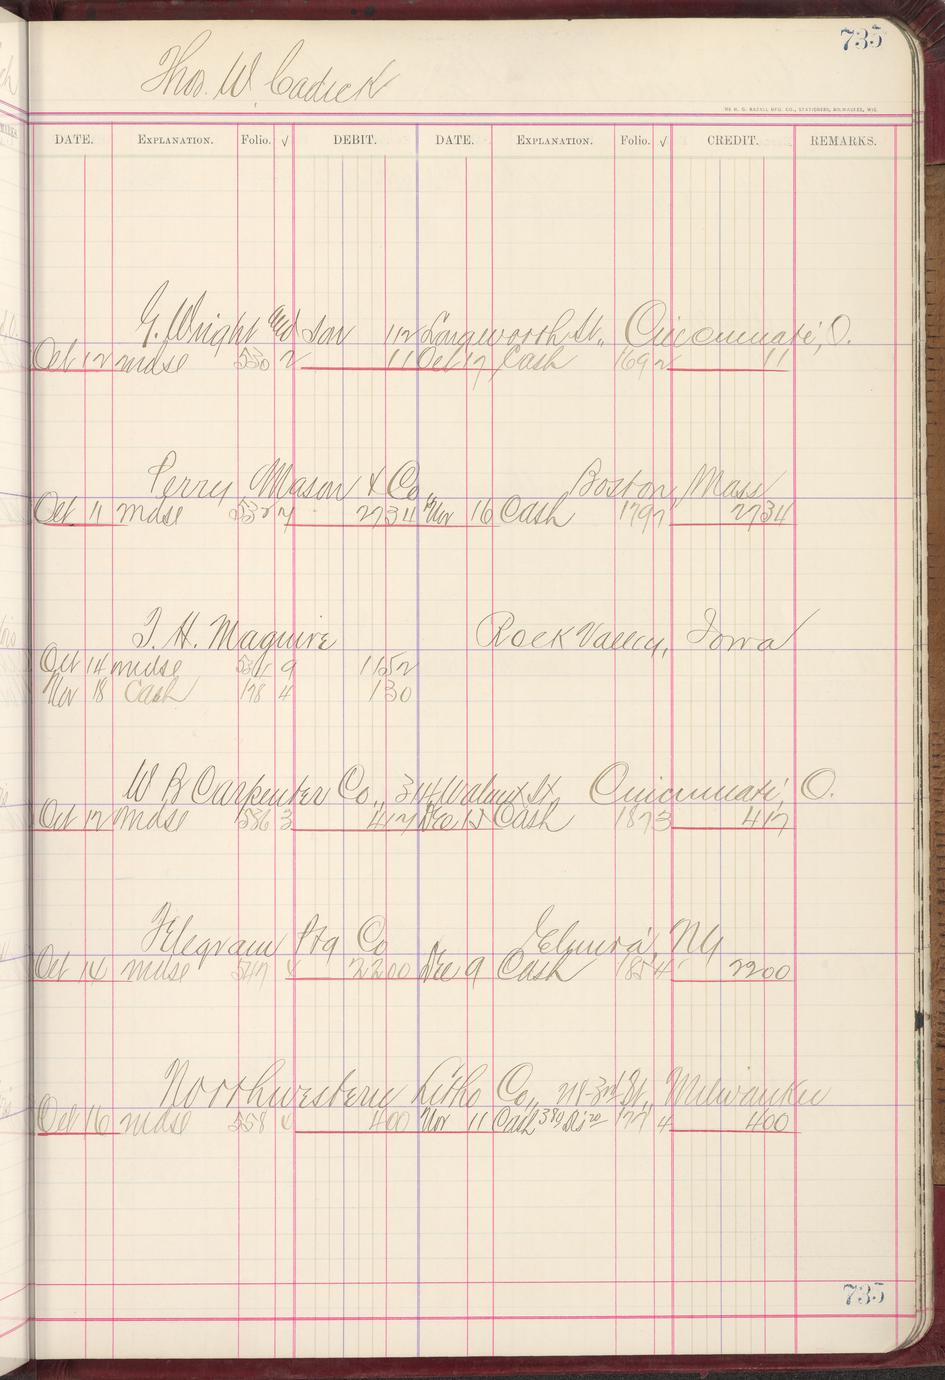 735
Thos. W. Cadick
THE H. G. RAZALL MFG. CO., STATIONERS, MILWAUKEE, WIS.
DATE. EXPLANATION. Folio. √ DEBIT. DATE. EXPLANATION. Folio. √ CREDIT. REMARKS.
G. Wright and Son 112 Longworth St., Cincinnati, O.
Oct 12 mdse 530 2 11 Oct 17 Cash 169 2 11
Perry Mason & Co., Boston, Mass
Oct 11 mdse 532 7 2734 Nov 16 Cash 179 7 2734
T. H. Maguire Rock Valley, Iowa
Oct 14 mdse 9 1152
Nov 18 Cash 178 4 130
W B Carpenter Co., 314 Walnut St Cincinnati, O.
Oct 12 mdse 536 3 417 Dec 15 Cash 187 3 417
Telegram Ptg Co Elmira, NY
Oct 14 mdse 547 4 2200 Dec 9 Cash 185 4 2200
Northwestern Litho Co., 218-3rd St., Milwaukee
Oct 16 mdse 558 400 Nov 11 Cash 380 Dis 20 177 4 400
735